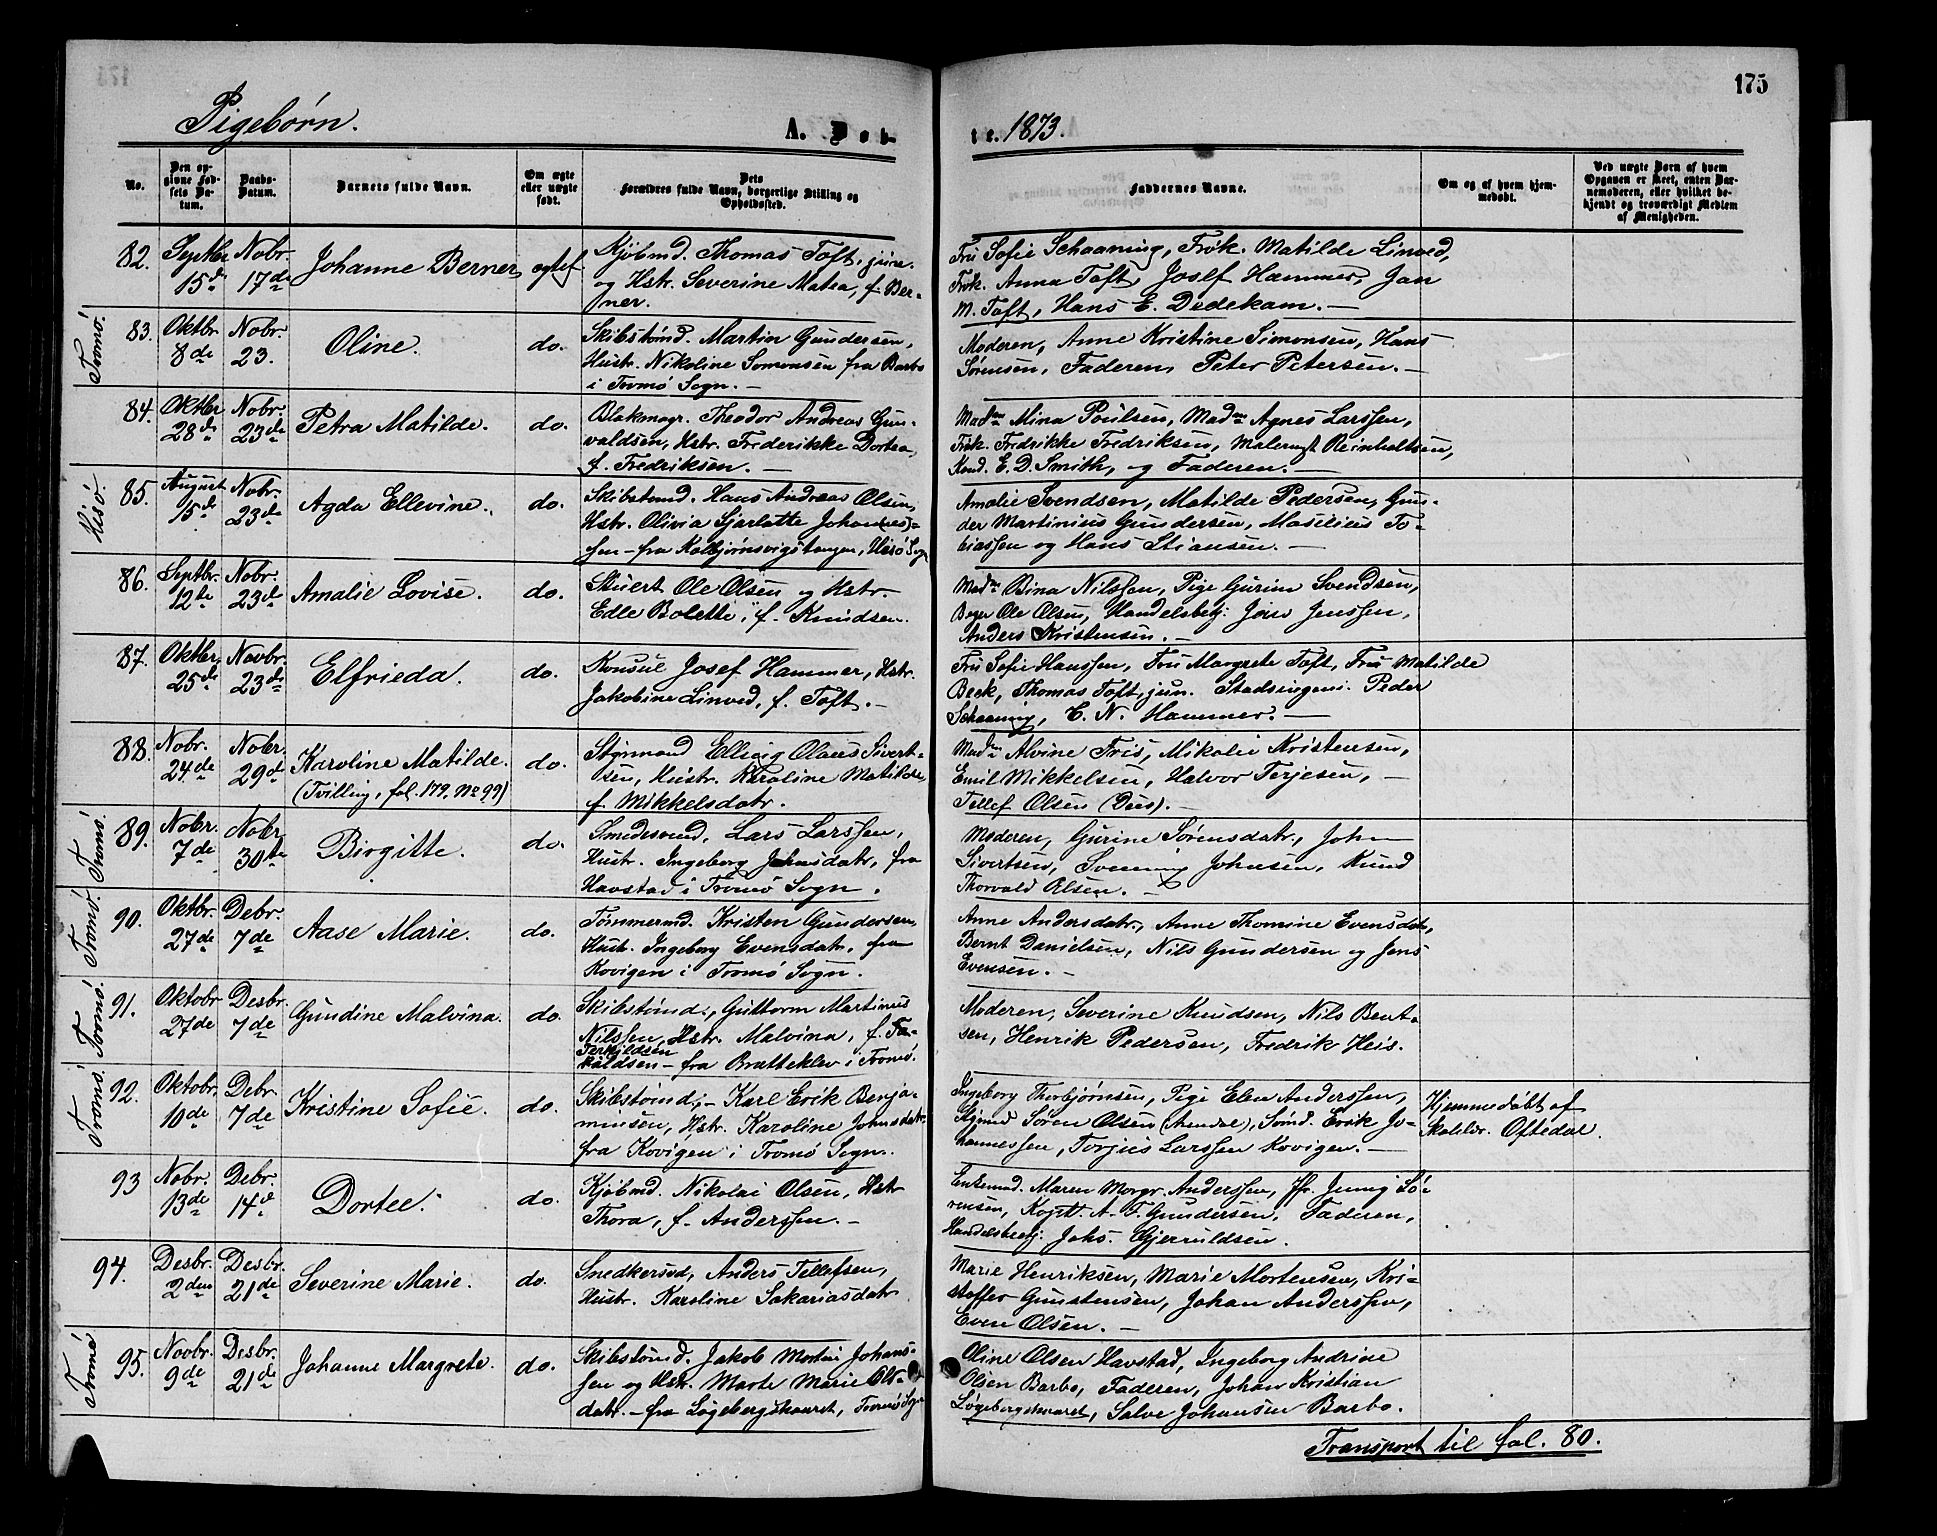 175
Pigebørn.
A. Døb-
te. 1873.
No.
Den op-
givne Fød-
sels Da-
tum.
Daabs-
Datum.
Barnets fulde Navn.
Om ægte
eller uægte
født.
Dets
Forældres fulde Navn, borgerlige Stilling og
Opholdssted.
Faddernes Navne.
Om og af hvem hjem-
medøbt.
Ved uægte Børn af hvem
Opgaven er skeet, enten Bar-
nemoderen, eller hvilket be-
kjendt og troværdigt Medlem
af Menigheden.
82. Septbr. 15de Nobr. 17de Johanne Berner ægtef.
Kjøbmd. Thomas Toft, junr.
og Hstr. Severine Matea, f. Ber-
ner.
Fru Sofie Schaaning, Frøk. Matilde Linved,
Frøk. Anna Toft, Josef Hammer, Jan
M. Toft, Hans E. Dedekam. —
Tromø.
83. Oktbr. 8de Nobr. 23. Oline. do.
Skibstømd. Martin Gundersen,
Hustr. Nikoline Somonsen fra Barbo
i Tromø Sogn. —
Moderen, Anne Kristine Simonsen, Hans
Sørensen, Faderen, Peter Petersen. —
84. Oktbr. 28de Nobr. 23de Petra Matilde. do.
Blokmagr. Theodor Andreas Gun-
valdsen, Hstr. Frederikke Dortea,
f. Fredriksen. —
Madm Mina Poulsen, Madm Agnes Larssen,
Frøk. Fredrikke Fredriksen, Malermst Reinholtsen,
Kand. E. D. Smith, og Faderen. —
Hisø.
85. August 15de Nobr. 23de Agda Ellevine. do.
Skibstømd. Hans Andreas Olsen,
Hstr. Olivia Sjarlotte Johan(nes)-
sen — fra Kolbjørnsvigstangen, Hisø Sogn
Amalie Svendsen, Matilde Pedersen, Gun-
der Martinius Gundersen, Masilius To-
biassen og Hans Stiansen. —
86. Septbr. 12te Nobr. 23de Amalie Lovise. do.
Stuert Ole Olsen og Hstr.
Edle Bolette, f. Knudsen.
Madm Bina Nilssen, Pige Gurine Svendsen,
Bager Ole Olsen, Handelsbetj. Jens Jenssen,
Anders Kristensen. —
87. Oktbr. 25de Novbr. 23de Elfrieda. do.
Konsul Josef Hammer, Hstr.
Jakobine Linved, f. Toft. —
Fru Sofie Hanssen, Fru Margrete Toft, Fru Matilde
Beck, Thomas Toft, jun. Stadsingeni. Peder
Schaaning, E. N. Hammer. —
88. Nobr. 24de Nobr. 29de Karoline Matilde. do.
(Tvilling, fol. 179, No 99)
Styrmand Ellevig Olaus Sivert-
sen, Hustr. Karoline Matilde
f. Mikkelsdatr.
Madm Alvine Friis, Mikalie Kristensen,
Emil Mikkelsen, Halvor Terjesen, —
Tellef Olsen (Dues). —
Tromø.
89. Nobr. 7de Nobr. 30te Birgitte. do.
Smedesvend, Lars Larssen,
Hustr. Ingeborg Johnsdatr, fra
Havstad i Tromø Sogn.
Moderen, Gurine Sørensdatr., John
Sivertsen, Svenning Johnsen, Knud
Thorvald Olsen. —
Tromø.
90. Oktbr. 27de Debr. 7de Aase Marie. do.
Tømmermd. Kristen Gundersen,
Hust. Ingeborg Evensdatr, fra
Kovigen i Tromø Sogn.
Anne Andersdatr., Anne Thomine Evensdatr,
Bernt Danielsen, Nils Gundersen og Jens
Evensen. —
Tromø.
91. Oktobr 27de Desbr. 7de Gundine Malvina. do.
Skibstømd., Guttorm Martinus
Nilssen, Hstr. Malvina, f.
Terkildsen
— fra Bratteklev i Tromø.
Moderen, Severine Knudsen, Nils Bent-
sen, Henrik Pedersen, Fredrik Heis.
Tromø.
92. Oktobr. 10de Debr. 7de Kristine Sofie. do.
Skibstømd. — Karl Erik Benja-
minsen, Hstr. Karoline Johnsdatr.
fra Kovigen i Tromø Sogn.
Ingeborg Thorbjørnsen, Pige Elen Anderssen,
Stjrmd Søren Olsen (Arendal), Sømd. Erik Jo-
hannessen, Torjus Larssen Kovigen. —
Hjemmedøbt af
Skolelr. Oftedal.
93 Nobr. 13de Debr. 14de Dortee. do.
Kjøbmd. Nikolai Olsen, Hstr
Thora, f. Anderssen. —
Enkemd. Maren Margr. Anderssen, Jfr. Jenny Sø-
rensen, Kaptl. A. T. Gundersen, Faderen,
Handelsbetj. Johs. Gjerruldsen.
94. Desbr. 2den Desbr. 21de Severine Marie. do.
Snedkersvd, Anders Tellefsen,
Hustr. Karoline Sakariasdatr
Marie Henriksen, Marie Mortensen, Kri-
stoffer Gunstensen, Johan Anderssen,
Even Olsen. —
Tromø
95. Novbr. 9de Desbr. 21de Johanne Margrete. do.
Skibstømd. Jakob Martin Johans-
sen og Hstr. Marte Marie Ols-
datr. — fra Løgebergskaaret, Tromø Sogn
Oline Olsen Havstad, Ingeborg Andrine
Olsen Barbo, Faderen, Johan Kristian
Løgebergskaaret, Salve Johansen Barbo.
Transport til fol. 80.